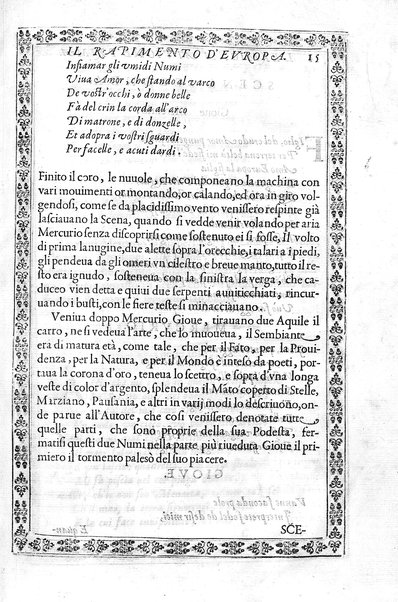 IL RAPIMENTO D'EVROPA. 15
Infiamar gli vmidi Numi
Viua Amor, che stando al varco
De vostr'occhi, ò donne belle
Fà del crin la corda all'arco
Di matrone, e di donzelle,
Et adopra i vostri sguardi
Per facelle, e acuti dardi.
Finito il coro, le nuuole, che componeano la machina con
vari mouimenti or montando, or calando, ed ora in giro vol-
gendosi, come se da placidissimo vento venissero respinte già
lasciauano la Scena, quando si vedde venir volando per aria
Mercurio senza discoprirsi come sostenuto ei si fosse, Il volto
di prima lanugine, due alette sopra l'orecchie, i talari a i piedi,
gli pendeua da gli omeri vn cilestro e breue manto, tutto il re-
sto era ignudo, sosteneua con la sinistra la verga, che ca-
duceo vien detta e quiui due serpenti auuiticchiati, rincur-
uando i busti, con le fiere teste si minacciauano.
Veniua doppo Mercurio Gioue, tirauano due Aquile il
carro, ne si vedeua l'arte, che lo moueua, il Sembiante
era di matura età, come tale, che per il Fato, per la Proui-
denza, per la Natura, e per il Mondo è inteso da poeti, por-
tua la corona d'oro, teneua lo scettro, e sopra d'vna longa
veste di color d'argento, splendeua il Mãto copetto di Stelle,
Marziano, Pausania, e altri in varij modi lo descriuono, on-
de parue all'Autore, che così venissero denotate tutte
quelle parti, che sono proprie della sua Podestà, fer-
matisi questi due Numi nella parte più riueduta Gioue il pri-
miero il tormento palesò del suo piacere.
GIOVE.
SCE-